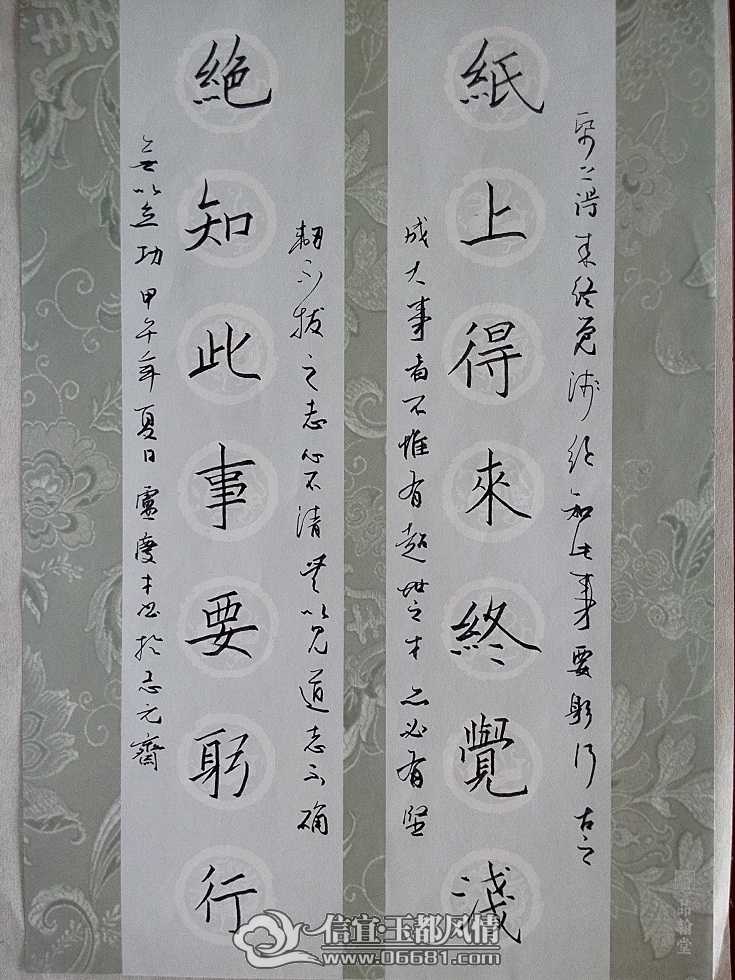 紙上得来終覺淺絶知此事要躬行古之
紙上得來終覺淺
成大事者不惟有超世之才亦必有堅
韌不拔之志心不清無以見道志不确
絶知此事要躬行
無以立功甲午年夏日盧慶才書於元齋
信宜·玉都风情
www.06681.com